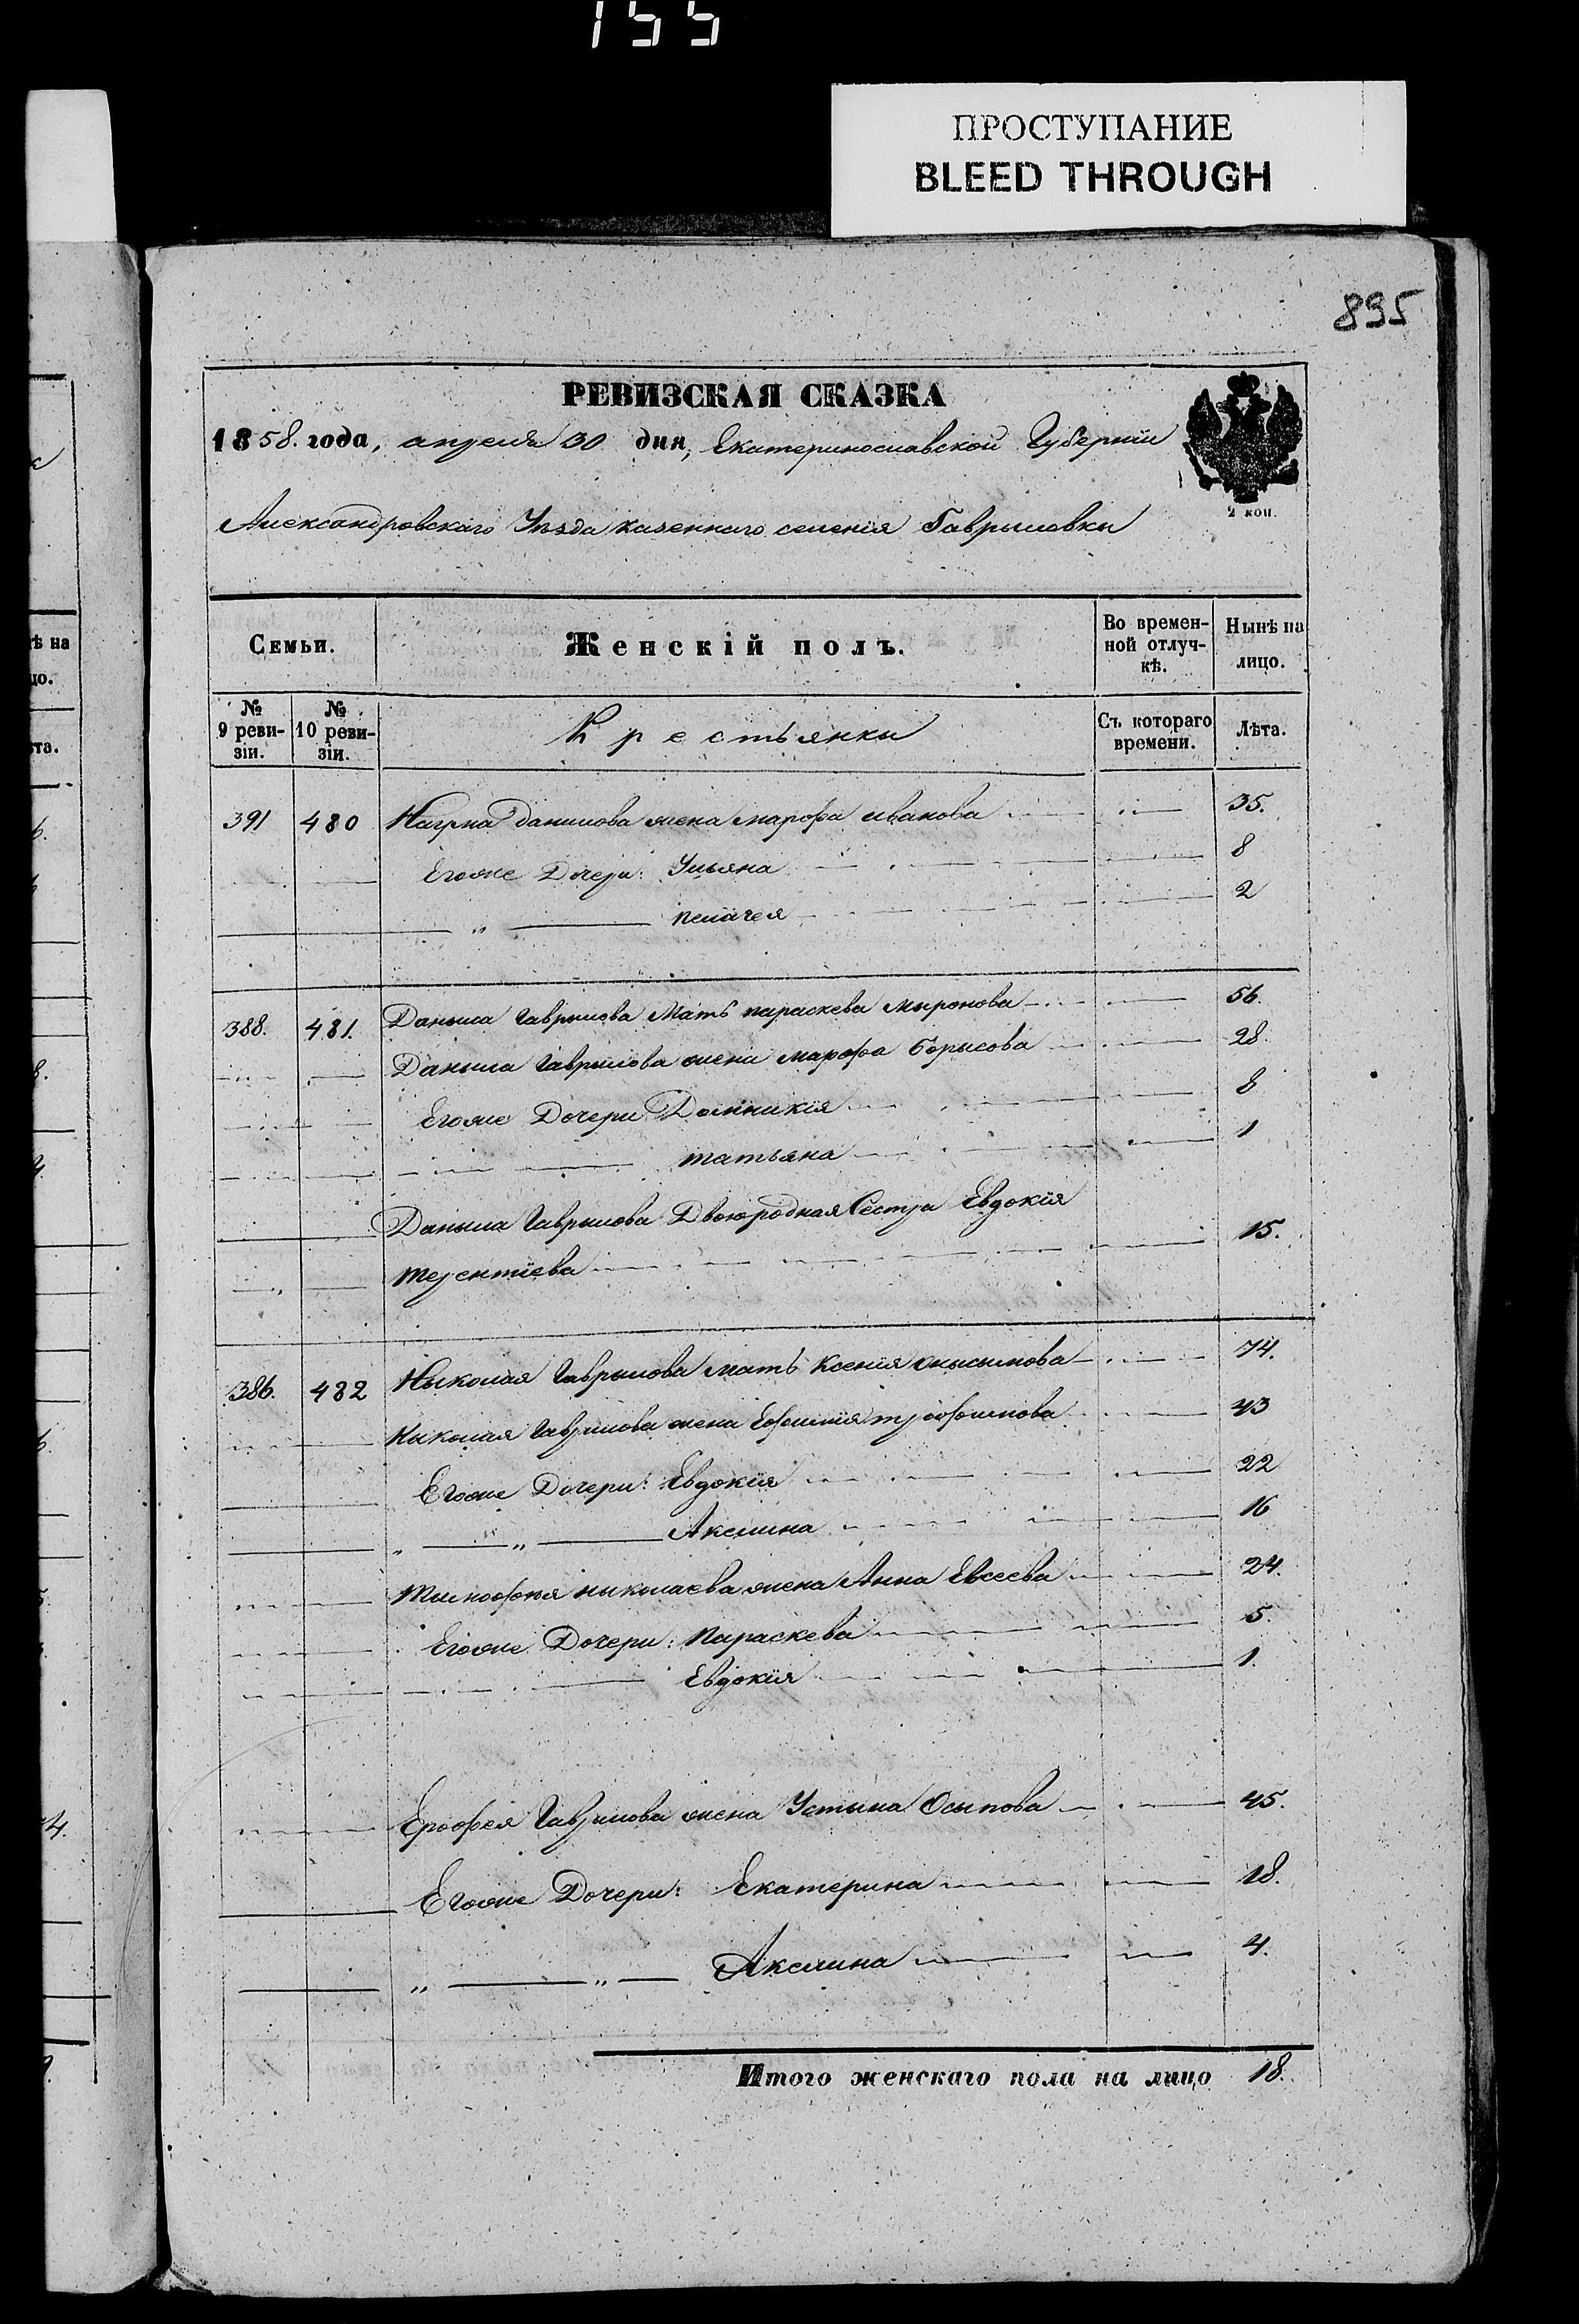 155
ПРОСТУПАНИЕ
BLEED THROUGH
895
РЕВИЗСКАЯ СКАЗКА
1858. года, апреля 30 дня, Екатеринославской Губерніи
Александровскаго Уѣзда казеннаго селенія Гаврыловки
2 коп.
Семьи.
Женскій полъ.
Во временной отлучкѣ.
Нынѣ на лицо.
№ 9 ревизіи.
№ 10 ревизіи.
Крестьянки
Съ котораго времени.
Лѣта.
391 480 Данилова жена марфа иванова 35.
Егоже Дочери: Ульяна 8
" пелагея 2
388. 481. Даныла Гаврылова Мать параскева мыронова 56.
Даныла Гаврылова жена марфа борысова 28.
Егоже Дочери Домникія 8
татьяна 1
Даныла Гаврылова Двоюродная Сестра Евдокія
терентіева 15.
386. 482 Ныколая Гаврылова мать Ксенія онысымова 74.
Ныколая Гаврилова жена Ефимія трофимова 43
Егоже Дочери: Евдокія 22
" " Акилина 16
тимофея николаева жена Анна Евсеева 24.
Егоже Дочери: Параскева 5.
Евдокія 1.
Ерофея Гаврилова жена Устына Осыпова 45.
Егоже Дочери: Екатерина 18.
" " Акилина 4.
Итого женскаго пола на лицо 18.